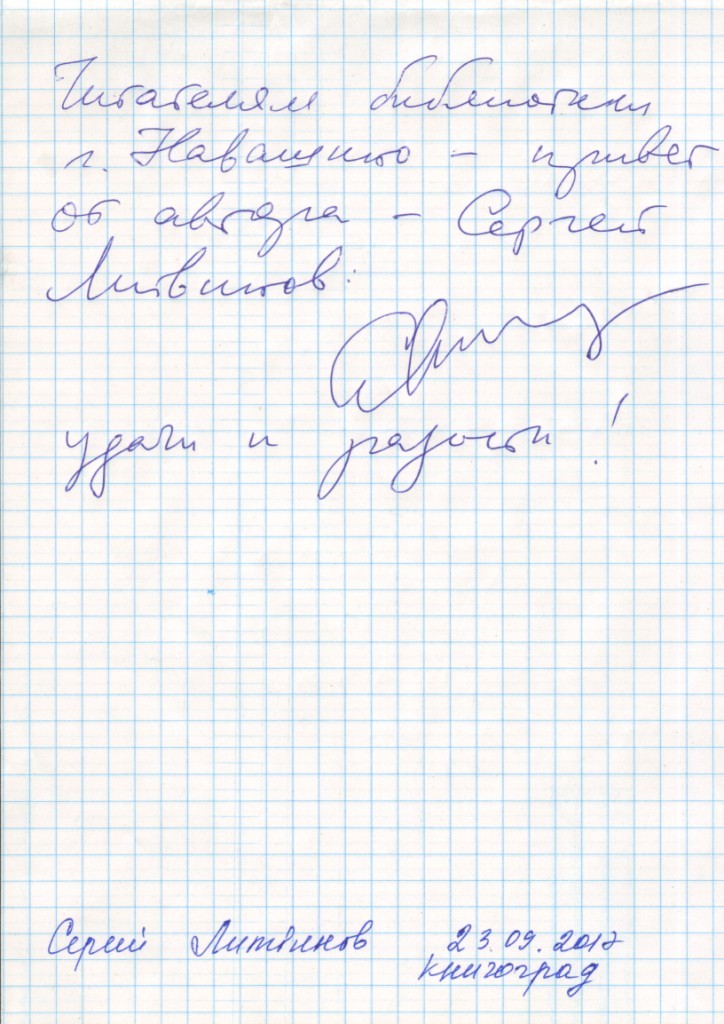 Читателям библиотеки
г. Навашино - привет
от автора - Сергей
Литвинов:
удачи и радости!
Сергей Литвинов 23.09.2017
книгоград